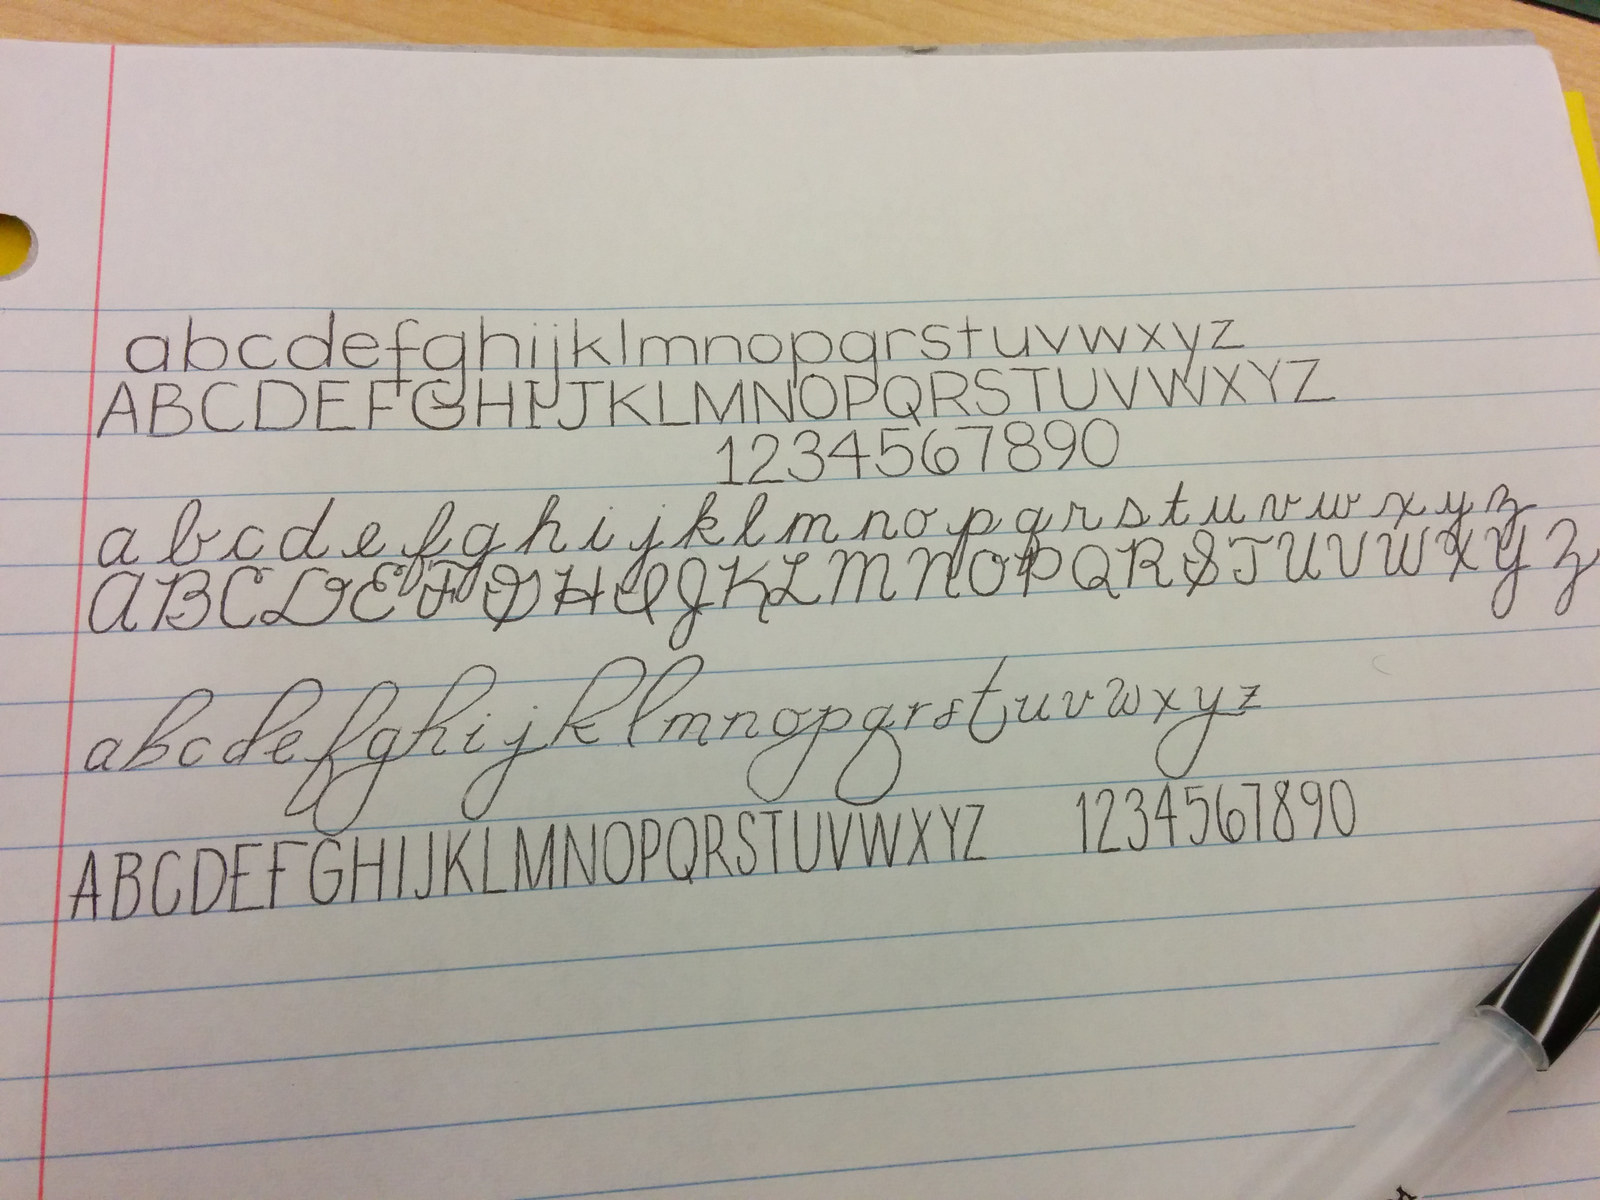 abcdefghijklmnopqrstuvwxyz
ABCDEFGHIJKLMNOPQRSTUVWXYZ
1234567890
a b c d e f g h i j k l m n o p q r s t u v w x y z
A B C D E F G H I J K L M N O P Q R S T U V W X Y Z
abcdefghijklmnopqrstuvwxyz
ABCDEFGHIJKLMNOPQRSTUVWXYZ 1234567890